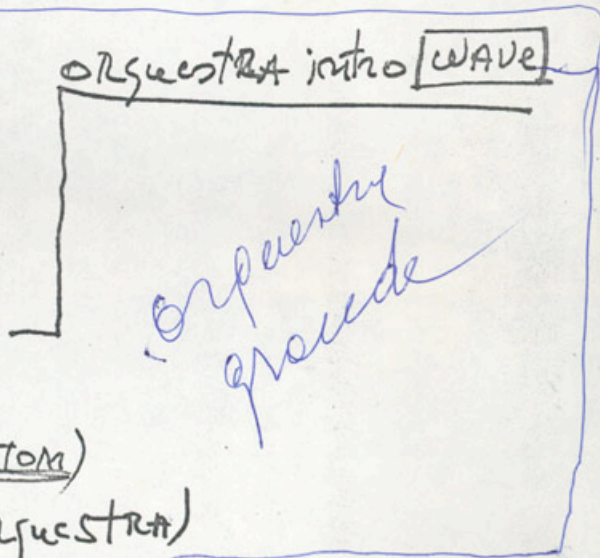 orquestra intro WAVE
orquestra
grande
TOM)
rquestRA)